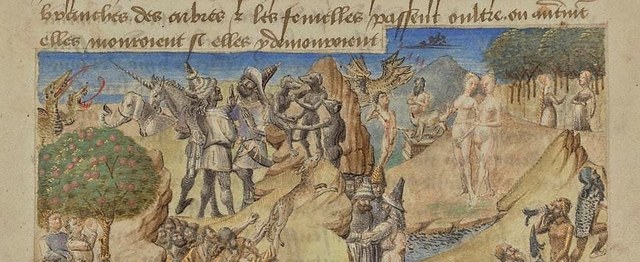 branches des arbres & les femelles passent oultre ou autrement
elles mouroient se elles y demouroient